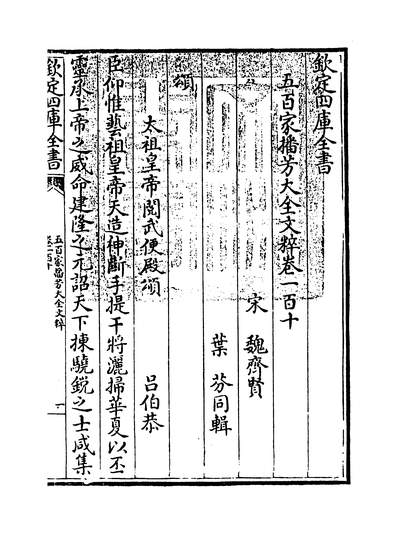 欽定四庫全書
五百家播芳大全文粹卷一百十
宋 魏齊賢
葉芬同輯
頌
太祖皇帝閱武便殿頌 吕伯恭
臣仰惟藝祖皇帝天造神斷手提干將灑掃華夏以丕
靈承上帝之威命建隆之元詔天下揀驍銳之士咸集
欽定四庫全書
五百家播芳大全文粹
卷一百十
一